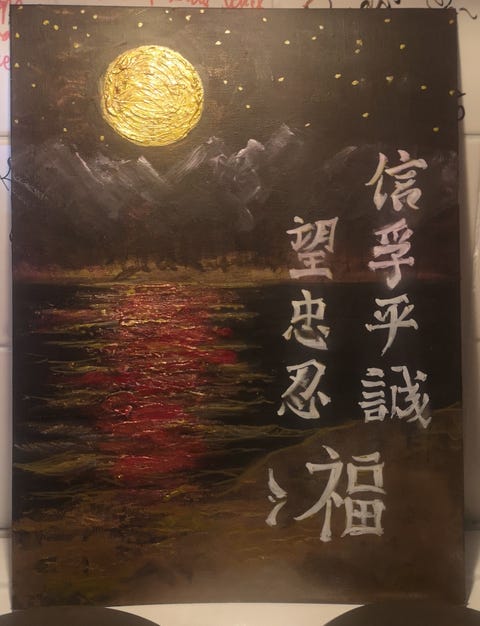 信孚平誠
望忠忍
福